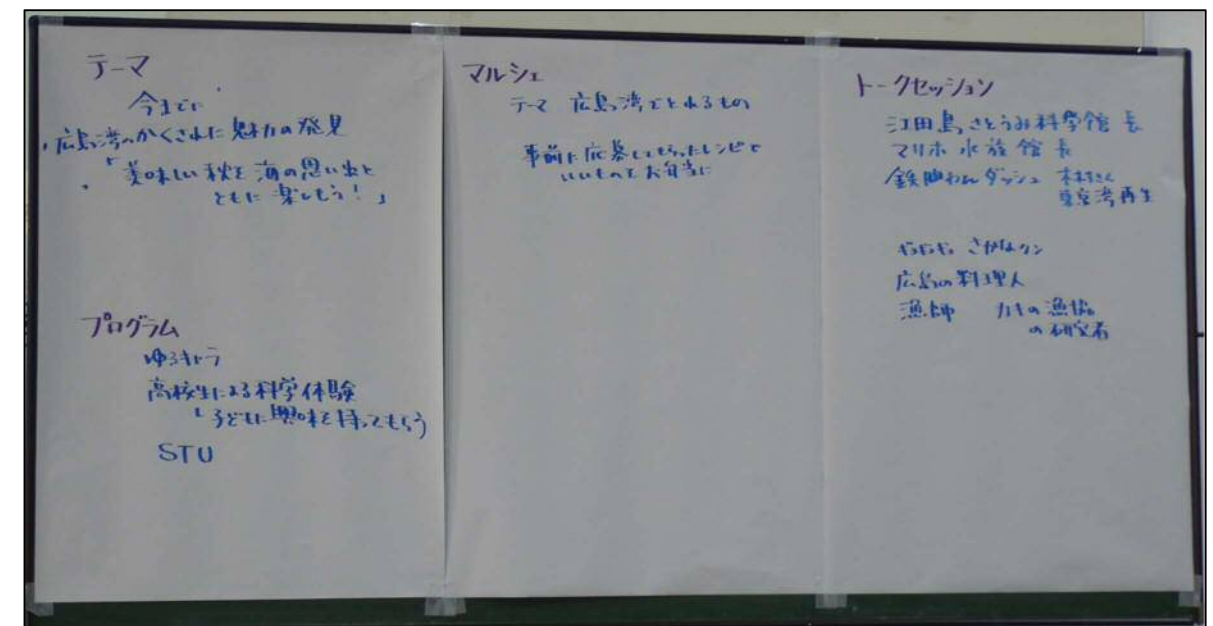 テーマ
今までに
・広島湾のかくされた魅力の発見
・「美味しい秋を海の思い出と
ともに楽しもう！」
プログラム
ゆるキャラ
高校生による科学体験
└子どもに興味を持ってもらう
STU
マルシェ
テーマ 広島湾でとれるもの
事前に応募してもらったレシピで
いいものをお弁当に
トークセッション
江田島さとうみ科学館 長
マリホ水族館 長
鉄腕わんダッシュ 木村さん
東京湾再生
さかなクン
広島の料理人
漁師 カキの漁協
の研究者